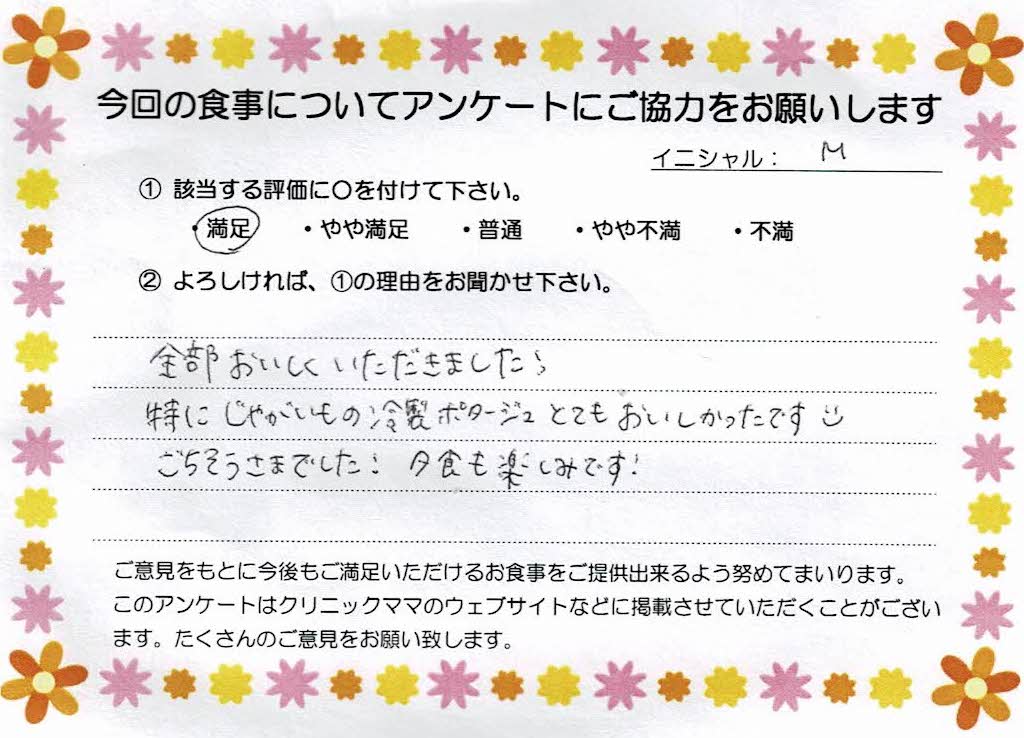 今回の食事についてアンケートにご協力をお願いします
イニシャル： M
① 該当する評価に○を付けて下さい。
・満足 ・やや満足 ・普通 ・やや不満 ・不満
② よろしければ、①の理由をお聞かせ下さい。
全部おいしくいただきました！
特にじゃがいもの冷製ポタージュとてもおいしかったです
ごちそうさまでした！ 夕食も楽しみです！
ご意見をもとに今後もご満足いただけるお食事をご提供出来るよう努めてまいります。
このアンケートはクリニックママのウェブサイトなどに掲載させていただくことがござい
ます。たくさんのご意見をお願い致します。